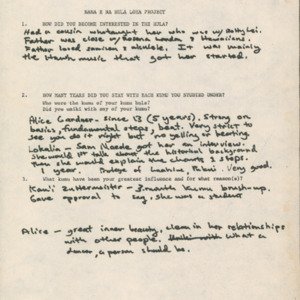 NANA E NA HULA LOEA PROJECT
1. HOW DID YOU BECOME INTERESTED IN THE HULA?
Had a cousin who taught her who was w/
Father was close w/ Hawaiians.
Father loved samisen & ukulele. It was mainly
the music that got her started.
2. HOW MANY YEARS DID YOU STAY WITH EACH KUMU YOU STUDIED UNDER?
Who were the kumu of your kumu hula?
Did you uniki with any of your kumu?
Alice Gardner - since 13 (5 years). Strong on
basics, fundamental steps, beat. Very strict to
see you do it right but no yelling or beating
Lokalia - Sam Naeole got her an interview.
She would talk about the historical background
then she would explain the chants & steps.
1 year. Very good.
3. What kumu have been your greatest influence and for what reason(s)?
Kau'i Zuttermeister - 3 month kumu brush-up.
Gave approval to say she was a student
Alice - great inner beauty, clean in her relationships
with other people. what a
dancer, a person should be.